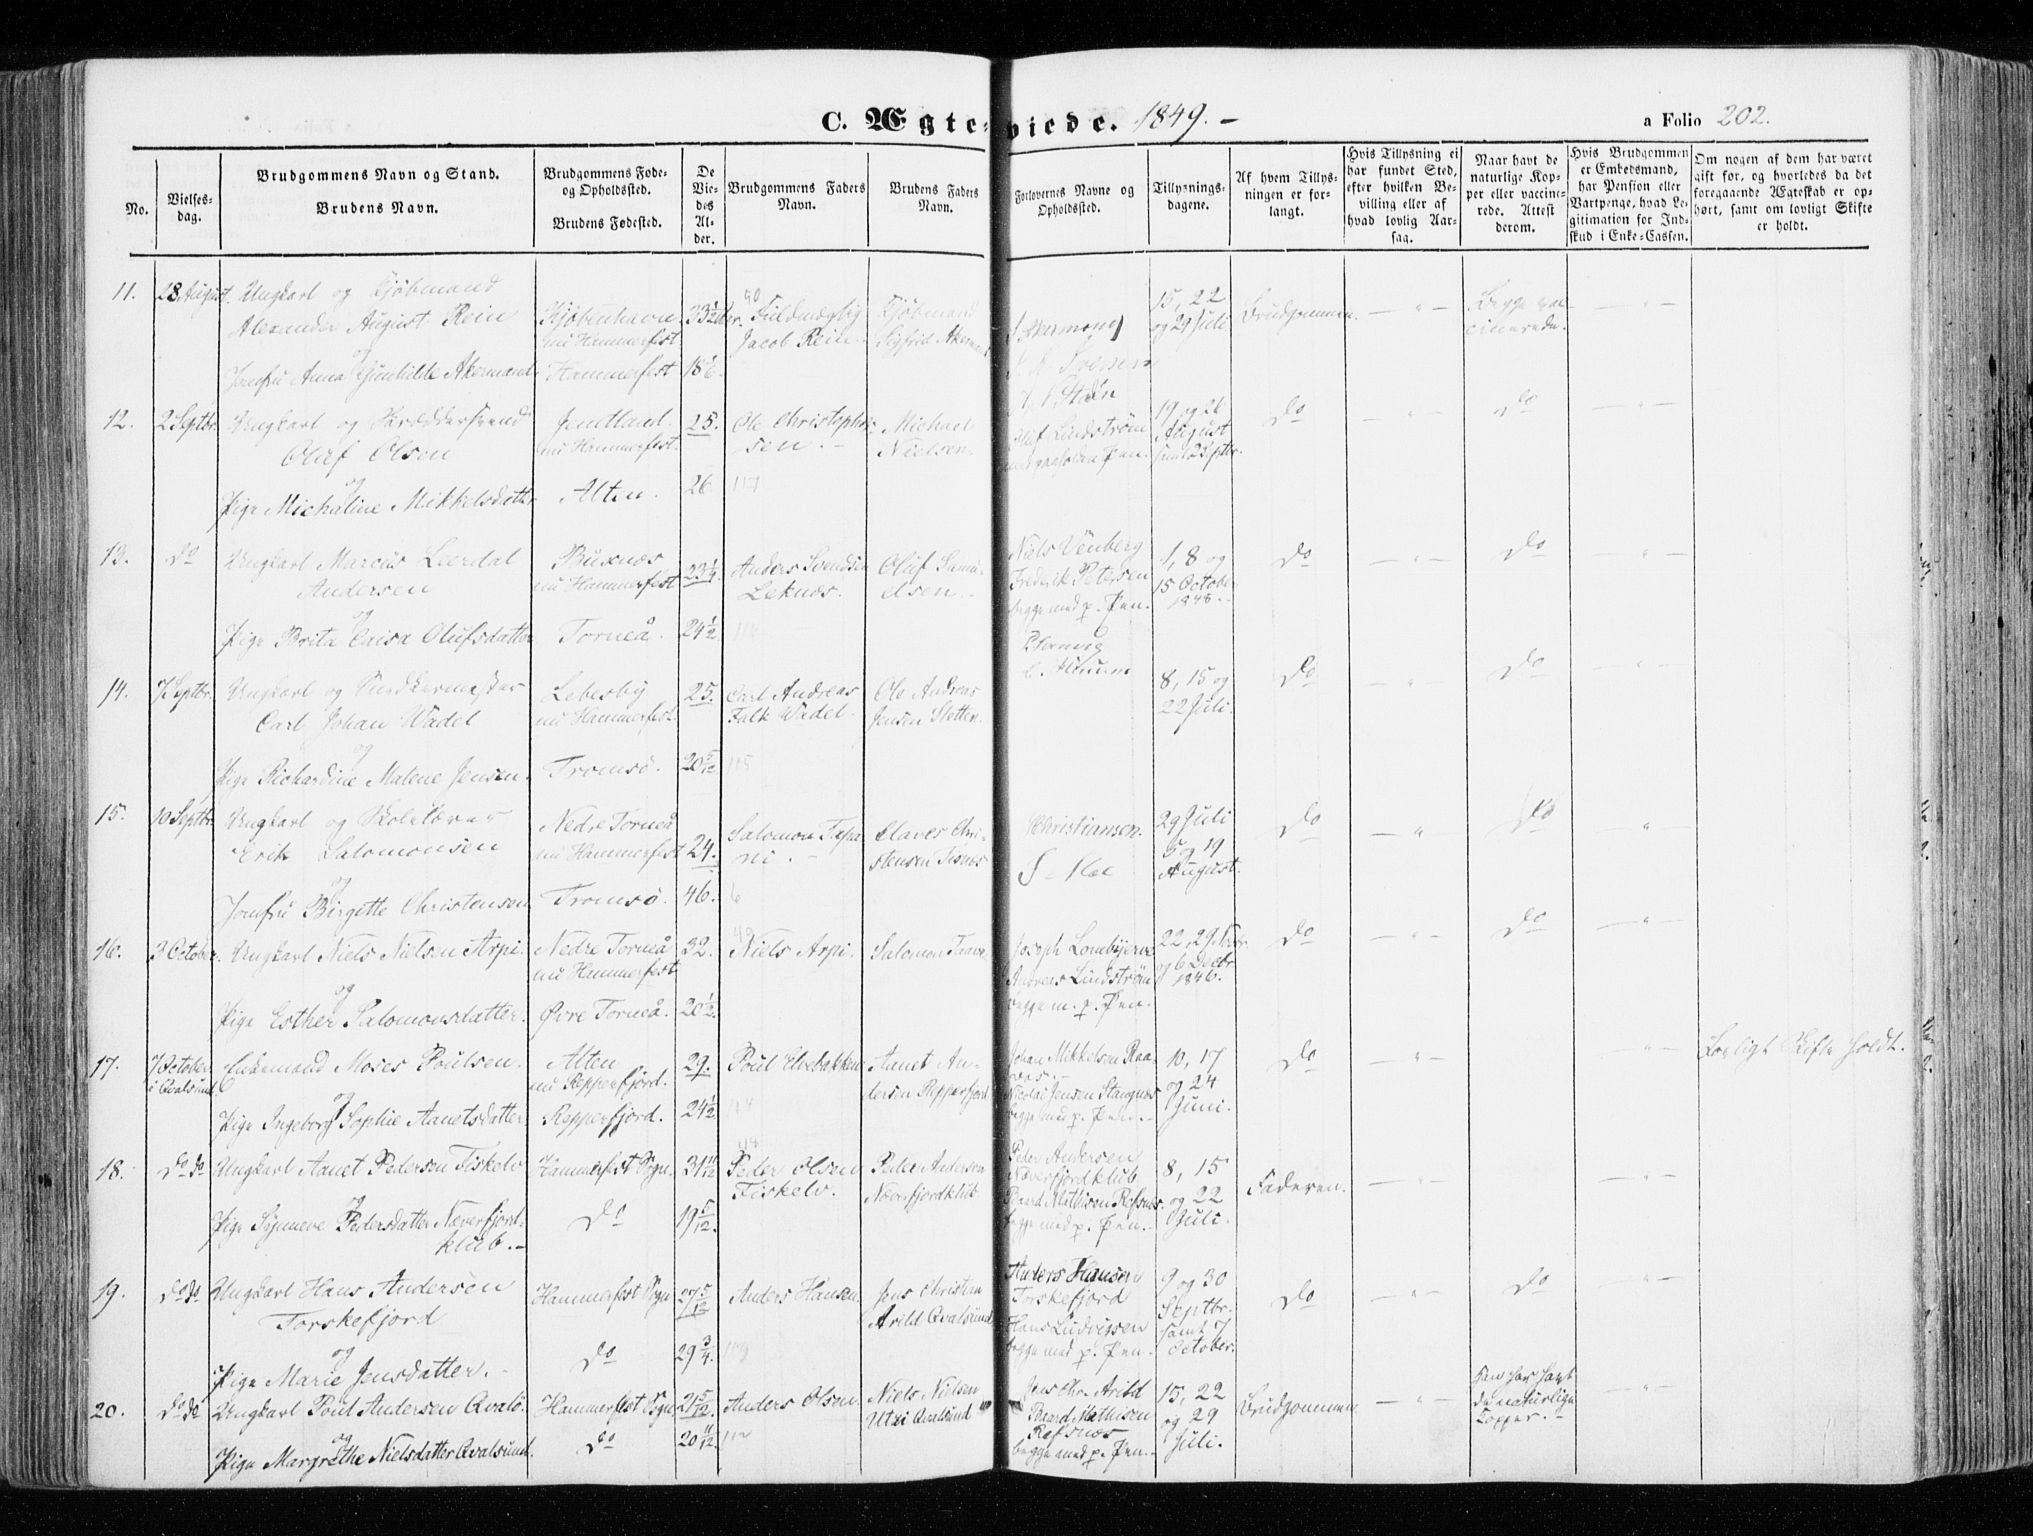 C. Ægteviede. 1849. –
a Folio 202.
No.
Vielses-
dag.
Brudgommens Navn og Stand.
Brudens Navn.
Brudgommens Føde-
og Opholdssted.
Brudens Fødested.
De
Vie-
des
Al-
der.
Brudgommens Faders
Navn.
Brudens Faders
Navn.
Forlovernes Navne og
Opholdssted.
Tillysnings-
dagene.
Af hvem Tillys-
ningen er for-
langt.
Hvis Tillysning ei
har fundet Sted,
efter hvilken Be-
villing eller af
hvad lovlig Aar-
sag.
Naar havt de
naturlige Kop-
per eller vaccine-
rede. Attest
derom.
Hvis Brudgommen
er Embedsmand,
har Pension eller
Vartpenge, hvad Le-
gitimation for Ind-
skud i Enke-Cassen.
Om nogen af dem har været
gift før, og hvorledes da det
foregaaende Ægteskab er op-
hørt, samt om lovligt Skifte
er holdt.
11. 28 August. Ungkarl og Kjøbmand
Alexander August Rein
og
Jomfru Anna Gunhilde Akermand
Kjøbenhavn
nu Hammerfest
Hammerfest
Fuldmægtig
Jacob Rein
Kjøbmand
Sigfrid Akermand
15, 22
og 29 Juli
Brudgommen.
Begge vac-
cinerede.
12. 2 Septbr. Ungkarl og Skreddersvend
Oluf Olsen
og
Pige Michaline Mikkelsdatter
Jemtland.
nu Hammerfest.
Alten.
25.
26
Ole Christopher-
sen.
Michael
Nielsen.
Oluf Lindstrøm
19 og 26
August
samt 2 Septbr.
Do
Do
13. Do Ungkarl Marcus Leerdal
Andersen
og
Pige Brita Caisa Olufsdatter
Buxnæs
nu Hammerfest
Torneå.
23 1/4
24 1/2
Anders Svendsen
Leknæs.
Oluf Samu-
elsen.
Niels Venberg
Frederik Petersen
begge med p. Pen.
1, 8 og
15 October
1848.
Do
Do
14. 7 Septbr. Ungkarl og Snedkermester
Carl Johan Wadel
og
Pige Richardine Malene Jensen.
Lebesby
nu Hammerfest.
Tromsø.
25.
20 5/12
115
Carl Andreas
Falk Wadel.
Ole Andreas
Jensen Sletten.
8, 15 og
22 Juli.
Do
Do
15. 10 Septbr. Ungkarl og Skolelærer
Erik Salomonsen
og
Jomfru Birgitte Christensen
Nedre Torneå
nu Hammerfest
Tromsø.
24.
46.
6
Salomon Tapa-
ni.
Claves Chri-
stensen Tisnes
Christiansen.
29 Juli
5 og 19
August.
Do
Do
16. 3 October. Ungkarl Niels Nielsen Arpi.
og
Pige Esther Salomonsdatter.
Nedre Torneå
nu Hammerfest
Øvre Torneå.
32.
20 1/2
Niels Arpi.
Salomon
Joseph
Andreas Lindstrøm
begge m. p. Pen.
22, 29 Novbr.
og 6 Decbr.
1846.
Do
Do
17. 7 October
i Qvalsund
Enkemand Moses Poulsen.
og
Pige Ingeborg Sophie Aanetsdatter
Alten
nu Repperfjord.
Repperfjord.
29.
24 1/2
Poul Elvebakken
Aanet An-
dersen Repperfjord
Johan Mikkelsen
Nicolai Jensen Stangnæs
begge med p. Pen.
10, 17
og 24
Juni.
Do
Lovligt Skifte holdt.
18. Do Do Ungkarl Aanet Pedersen Fiskelv
og
Pige Synneve Pedersdatter Næverfjord-
klub.
Hammerfest Sogn.
Do
31 11/12
19 5/12
Peder Olsen
Fiskelv.
Peder Andersen
Næverfjordklub
Peder Andersen
Næverfjordklub
Baard Mathisen Refsnæs.
begge med p. Pen.
8, 15
og 22
Juli.
Faderen.
19. Do Do Ungkarl Hans Andersen
Torskefjord
og
Pige Marie Jensdatter.
Hammerfest Sogn
Do
27 5/12
29 3/4.
Anders Hansen.
Jens Christian
Arild Qvalsund
Anders Hansen
Torskefjord
Hans Ludvigsen
begge med p. Pen.
9 og 30
Septbr.
samt 7
October.
Do
Do
20. Do Do Ungkarl Poul Andersen Qvalø.
og
Pige Margrethe Nielsdatter Qvalsund.
Hammerfest Sogn
Do
21 5/12.
20 11/12.
112
Anders Olsen.
Niels Nielsen
Utsi Qvalsund
Jens Chr. Arild
Baard Mathisen
Refsnæs
begge med p. Pen.
15, 22
og 29
Juli.
Brudgommen
Han har havt
de naturlige
Kopper.